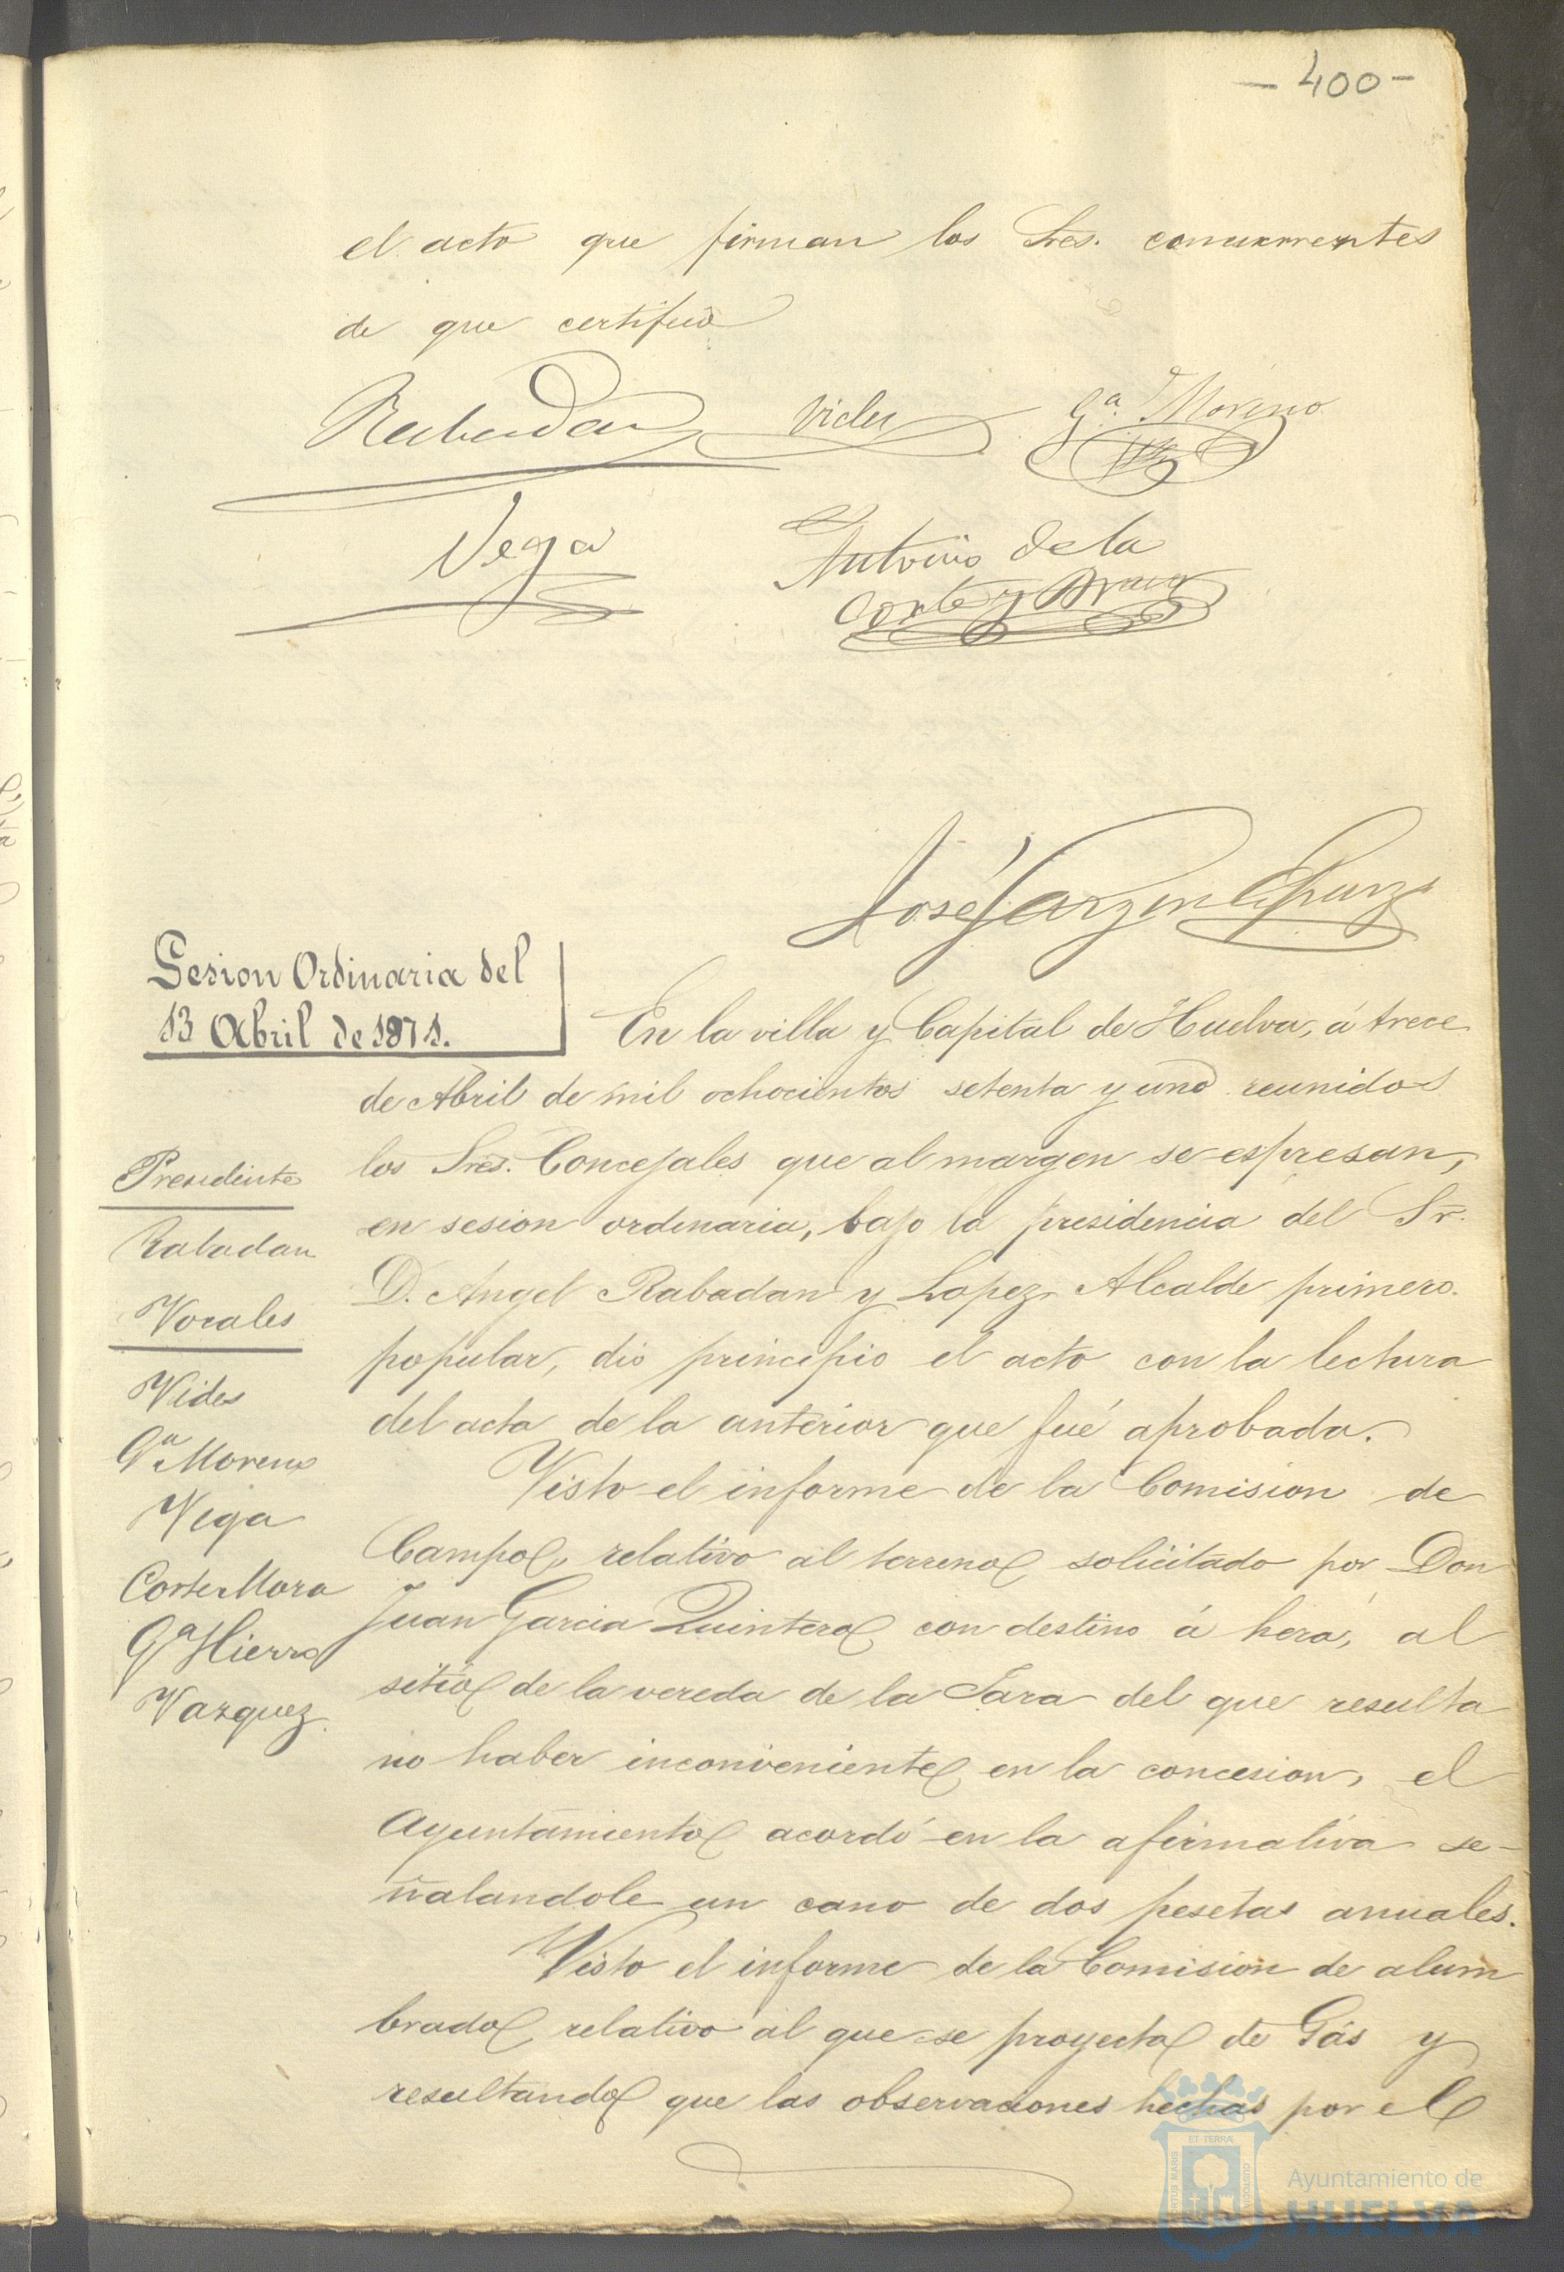 - 400 -
el acto que firman los Sres. concurrentes
de que certifico
Rabadan Vides Gª Moreno
Vega Antonio de la
Corte y Bravo
José Garzon
Sesion Ordinaria del
13 Abril de 1871.
En la villa y Capital de Huelva, á trece
de Abril de mil ochocientos setenta y uno reunidos
los Sres. Concejales que al margen se espresan,
en sesion ordinaria, bajo la presidencia del Sr.
D. Angel Rabadan y Lopez, Alcalde primero
popular, dio principio el acto con la lectura
del acta de la anterior que fué aprobada.
Visto el informe de la Comision de
Campo, relativo al terreno solicitado por Don
Juan Garcia Quintero con destino á hera, al
sitio de la vereda de la Jara del que resulta
no haber inconveniente en la concesion, el
Ayuntamiento acordó en la afirmativa se-
ñalandole un cano de dos pesetas anuales.
Visto el informe de la Comision de alum
brado relativo al que se proyecta de Gás y
resultando que las observaciones hechas por el
Presidente
Rabadan
Vocales
Vides
Gª Moreno
Vega
Corte Mora
Gª Hierro
Vazquez
ET TERRA
PORTUS MARIS
CUSTODIA
Ayuntamiento de
HUELVA